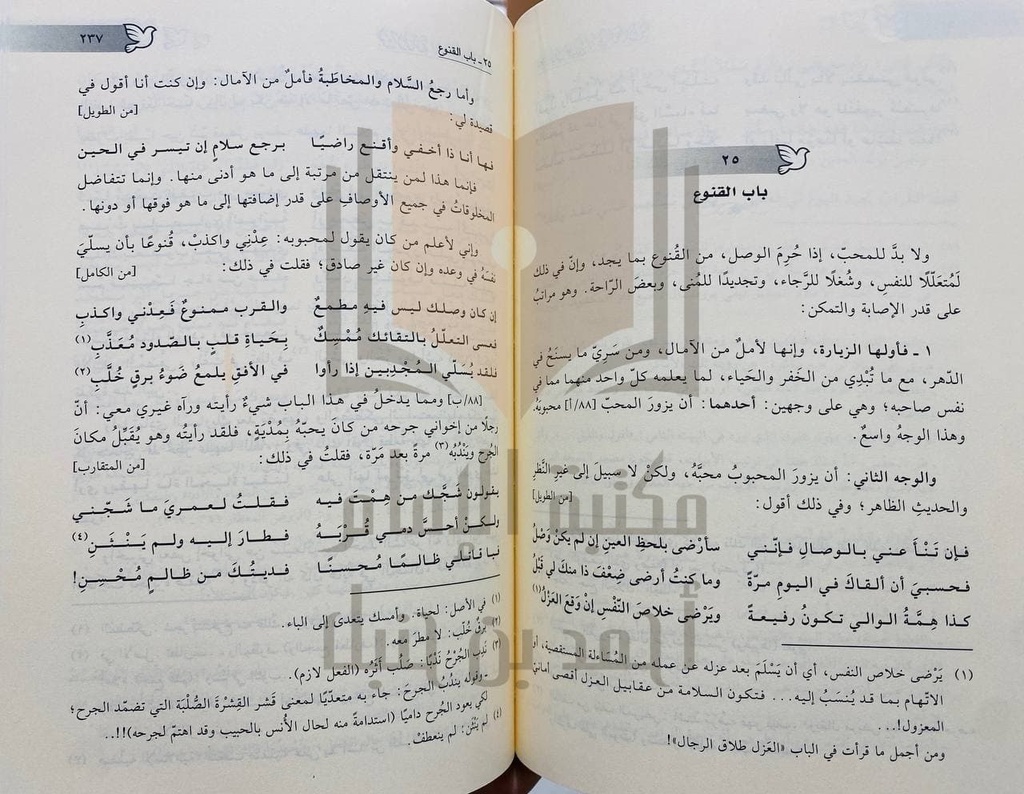 ٢٥
باب القنوع
ولا بدَّ للمحبّ، إذا حُرِمَ الوصل، من القُنوع بما يجد، وإنّ في ذلك
لَمُتعَلّلًا للنفسِ، وشُغلًا للرَّجاء، وتجديدًا للمُنى، وبعضَ الرّاحة. وهو مراتبُ
على قدر الإصابة والتمكن:
١ - فأولها الزيارة، وإنها لأملٌ من الآمال، ومن سَريّ ما يسنَحُ في
الدّهر، مع ما تُبْدِي من الخَفر والحَياء، لما يعلمه كلّ واحد منهما مما في
نفس صاحبه؛ وهي على وجهين: أحدهما: أن يزورَ المحبّ [٨٨/أ] محبوبَهُ.
وهذا الوجهُ واسعٌ.
والوجه الثاني: أن يزورَ المحبوبُ محبَّهُ، ولكنْ لا سبيلَ إلى غيرِ النَّظرِ
والحديثِ الظاهر؛ وفي ذلك أقول:
[من الطويل]
فإن تَنْأَ عني بالوصالِ فإنّني سأرْضى بلحظِ العينِ إن لم يكنْ وَصْلُ
فحسبيَ أن ألقاكَ في اليومِ مرّةً وما كنتُ أرضى ضِعْفَ ذا منكَ لي قَبْلُ
كذا هِمَّةُ الوالي تكونُ رفيعةً ويَرْضى خلاصَ النّفْسِ إنْ وَقعَ العَزْلُ(١)
(١) يَرْضى خلاص النفس، أي أن يَسْلَمَ بعد عزله عن عمله من المُسَاءلة المستقصية، أو
الاتهام بما قد يُنسَبُ إليه... فتكون السلامة من عقابيل العزل أقصى أماني
المعزول!...
ومن أجمل ما قرأت في الباب «العَزل طلاق الرجال»!
٢٥ - باب القنوع
٢٣٧
وأما رجعُ السَّلام والمخاطَبةُ فأملٌ من الآمال: وإن كنت أنا أقول في
قصيدة لي:
[من الطويل]
فها أنا ذا أخفي وأقنع راضيًا برجع سلامٍ إن تيسر في الحين
فإنما هذا لمن ينتقل من مرتبة إلى ما هو أدنى منها. وإنما تتفاضل
المخلوقاتُ في جميع الأوصاف على قدر إضافتها إلى ما هو فوقها أو دونها.
وإني لأعلم من كان يقول لمحبوبه: عِدْني واكذبْ، قُنوعًا بأن يسلّيَ
نفسَهُ في وعده وإن كان غير صادق؛ فقلت في ذلك:
[من الكامل]
إن كان وصلك ليس فيهِ مطمعٌ والقرب ممنوعٌ فَعِدْني واكذبِ
فعسى التعلّلُ بالتقائك مُمْسِكٌ بحَياةِ قلبٍ بالصّدود مُعَذَّبِ(١)
فلقد يُسَلّي المُجْدِبين إذا رأوا في الأفقِ يلمعُ ضَوءُ برقٍ خُلَّبِ(٢)
[٨٨/ب] ومما يدخلُ في هذا الباب شيءٌ رأيته ورآه غيري معي: أنّ
رجلًا من إخواني جرحه من كانَ يحبّهُ بمُدْيَةٍ، فلقد رأيتُه وهو يُقَبِّلُ مكانَ
الجُرح ويَنْدُبُه(٣) مرةً بعد مَرّة، فقلتُ في ذلك:
[من المتقارب]
يقولون شَجَّك من هِمْتَ فيه فقلتُ لعمريَ ما شَجّني
ولكنْ أحسَّ دمي قُرْبَهُ فطارَ إليه ولم يَنْثَنِ(٤)
فيا قاتلي ظالمًا مُحسنًا فديتُكَ من ظالمٍ مُحْسِنِ!
(١) في الأصل: لحياة. وأمسك يتعدى إلى الباء.
(٢) برقٌ خُلّب: لا مطرَ معه.
(٣) نَدِبَ الجُرْحُ نَدَبًا: صَلُب أَثَرُه (الفعل لازم).
- وقوله يندُبُ الجرحَ: جاء به متعديًا لمعنى قَشر القِشرَةِ الصُّلبَة التي تضمّد الجرح؛
لكي يعود الجُرح داميًا (استدامةً منه لحال الأُنس بالحبيب وقد اهتمّ لجرحه)!!..
(٤) لم يَنْثَنِ: لم ينعطف.
مكتبة الإمام
أحمد بن